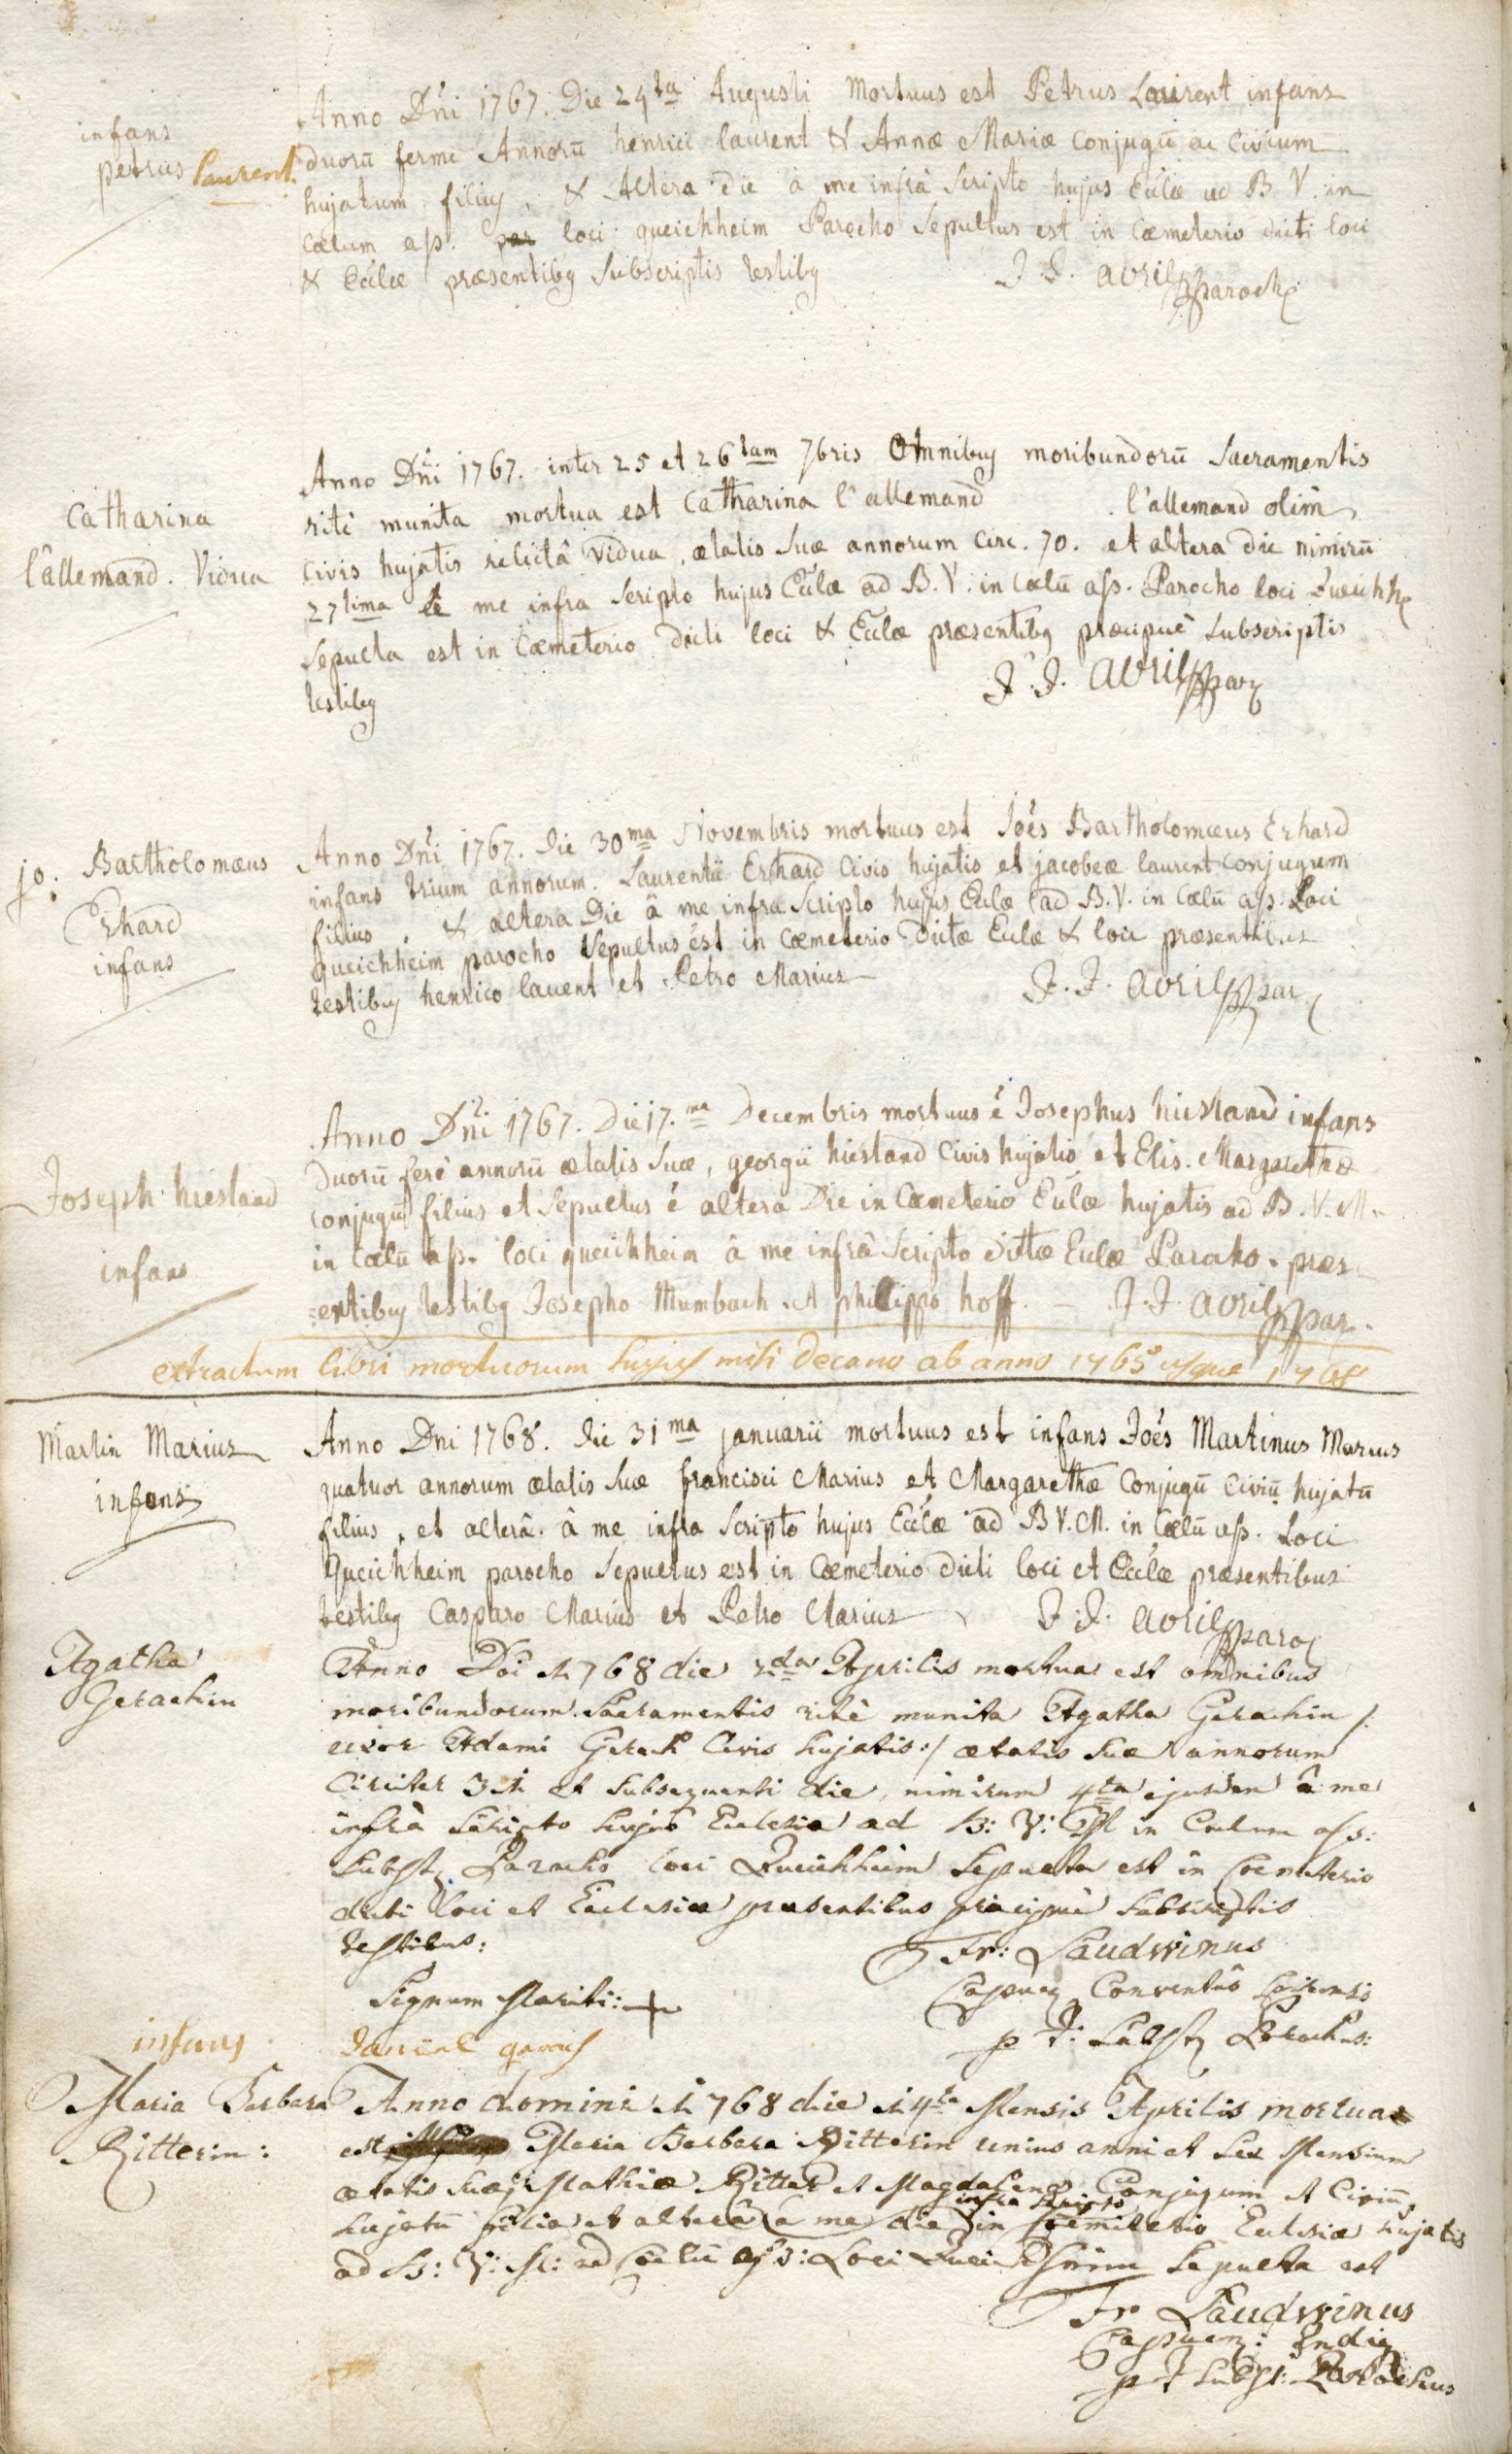 infans
petrus laurent.
Anno Dni 1767. Die 24ta Augusti Mortuus est Petrus Laurent infans
duorū ferme Annorū henrici laurent & Annæ Mariæ conjugū ac Civium
hujatum filius, & Altera die à me infrà Scripto hujus Eclæ ad B. V. in
Cælum ass. loci queichheim Parocho Sepultus est in Cæmeterio dicti loci
& Eclæ præsentibus Subscriptis testibus
J. J. avril parochus
Catharina
l'allemand. Vidua
Anno Dni 1767. inter 25 et 26tam 7bris Omnibus moribundorū Sacramentis
ritè munita mortua est Catharina l'allemand l'allemand olim
Civis hujatis relictâ vidua, ætatis Suæ annorum Circ. 70. et altera die nimirū
27tima me infra Scripto hujus Eclæ ad B. V. in Cælū ass. Parocho loci Queichh
Sepulta est in Cæmeterio dicti loci & Eclæ præsentibus præcipuè subscriptis
testibus
J. J. avril par
jo: Bartholomæus
Erhard
infans
Anno Dni 1767. Die 30ma Novembris mortuus est Joés Bartholomæus Erhard
infans trium annorum. Laurentii Erhard Civis hujatis et jacobeæ laurent conjugum
filius, & altera Die à me infra Scripto hujus Eclæ ad B. V. in Cælū ass. Loci
queichheim parocho Sepultus est in Cæmeterio dictæ Eclæ & loci præsentibus
testibus henrico lauent et Petro Marius
J. J. avril par
Joseph hiestand
infans
Anno Dni 1767. Die 17.ma Decembris mortuus é Josephus hiestand infans
Duorū ferè annorū ætatis Suæ, georgii hiestand Civis hujatis et Elis. Margarethæ
conjugū filius et Sepultus é altera Die in Cæmeterio Eclæ hujatis ad B. V. M.
in Cælū ass. loci queichheim à me infrà Scripto dictæ Eclæ Parocho. præs
=entibus testibus Josepho Mumbach. et philippo hoff. — J. J. avril par.
extractum libri mortuorum hujus misi Decano ab anno 1765 usque 1768
Martin Marius
infans
Anno Dni 1768. Die 31ma januarii mortuus est infans Joés Martinus Marius
quatuor annorum ætatis Suæ francisci Marius et Margarethæ Conjugū Civiū hujatū
filius, et alterâ. à me infra Scripto hujus Eclæ ad B V. M. in Cælū ass. Loci
Queichheim parocho Sepultus est in Cæmeterio dicti loci et Eclæ præsentibus
testibus Casparo Marius et Petro Marius
J. J. avril paro
Agatha
Gerachin
Anno Doi 1768 die 2da Aprilis mortua est omnibus
moribundorum Sacramentis ritè munita Agatha Gerachin /:
uxor Adami Gerach Civis hujatis:/ ætatis suæ annorum
Circiter 31 et subsequenti die, nimirum 4ta ejusdem à me
infrà scripto hujus Ecclesiæ ad B: V: M in Cælum ass:
Subst. Parocho loci Queichheim Sepulta est in Coemeterio
dicti loci et Ecclesiæ præsentibus præcipuè subscriptis
testibus:
Fr: Laudwinus
Signum Mariti: +
Capuc. Conventûs
p. t: Subst. Parochus:
infans
Maria Barbara
Ritterin:
Anno domini 1768 die 14ta Mensis Aprilis mortua
est Maria Barbara Ritterin unius anni et sex Mensium
ætatis suæ, Mathiæ Ritter et Magdalenæ Conjugum et Civiū
infra scripto
hujatū filia et alterâ à me die in Coemiterio Ecclesiæ hujatis
ad B: V: M: ad Coelū ass: Loci Queichheim Sepulta est
Fr Laudwinus
Capucin: Indig
p t subst: Parochus